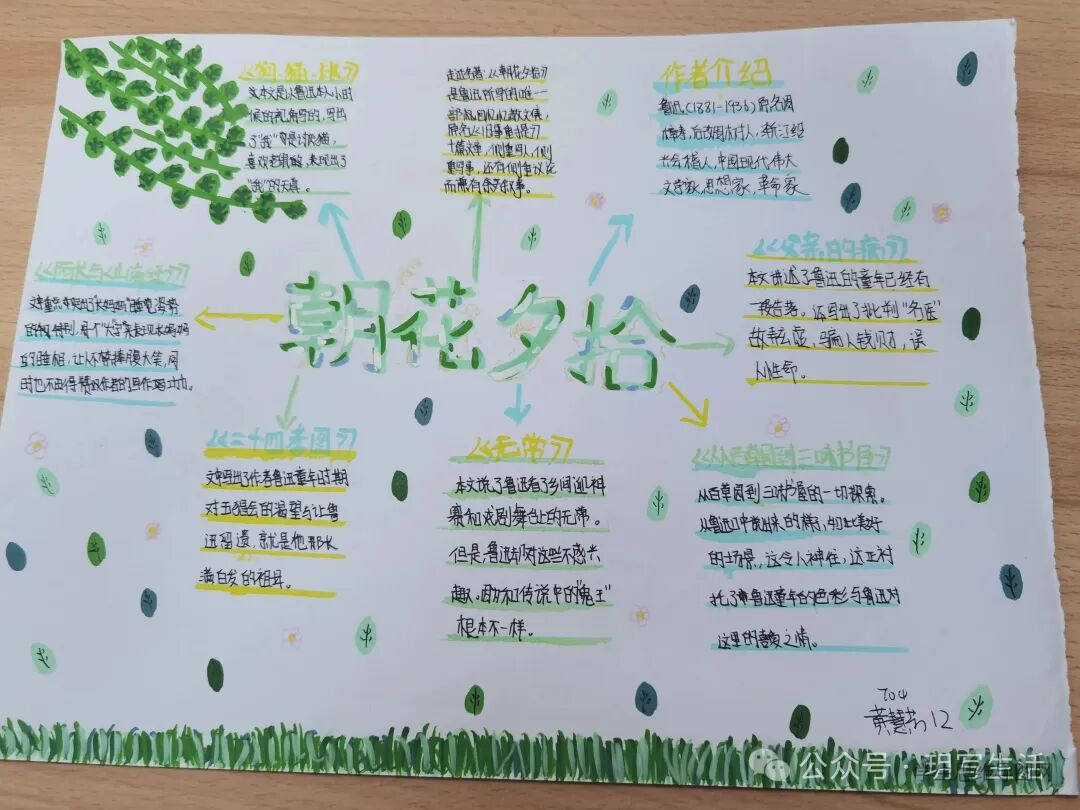 《狗·猫·鼠》
这本文是以鲁迅本人小时
候的视角写的，写出
了“我”
喜欢老鼠的，表现出了
“我”的天真。
走进名著：《朝花夕拾》
是鲁迅所写的唯一一
部回忆散文集，
原名《旧事重提》
十篇文章，
而兼有
作者介绍
鲁迅（1881-1936）原名周
樟寿，后改周树人，浙江绍
兴会稽人，中国现代伟大
文学家，思想家，革命家
《阿长与《山海经》》
的特别，
的睡相，让人不禁捧腹大笑，同
时也不由得赞叹作者的写作
朝花夕拾
《父亲的病》
本文讲述了鲁迅的童年已经有
，还写出了批判“名医”
故弄玄虚，骗人钱财，误
人性命。
《二十四孝图》
文中写出了作者鲁迅童年时期
对
迅留遗，就是他那
满白发的祖母。
《无常》
本文说了鲁迅看了乡间迎神
赛和戏剧舞台上的无常。
但是，鲁迅却对这些不感兴
趣。因为和传说中的“鬼王”
根本不一样。
《从百草园到三味书屋》
从百草园到三味书屋的一切探索。
从鲁迅口中说出来的样，如此美好
的场景，这令人神往，这正衬
托了鲁迅童年的色彩与鲁迅对
这里的喜爱之情。
704
12
公众号·玥写生活